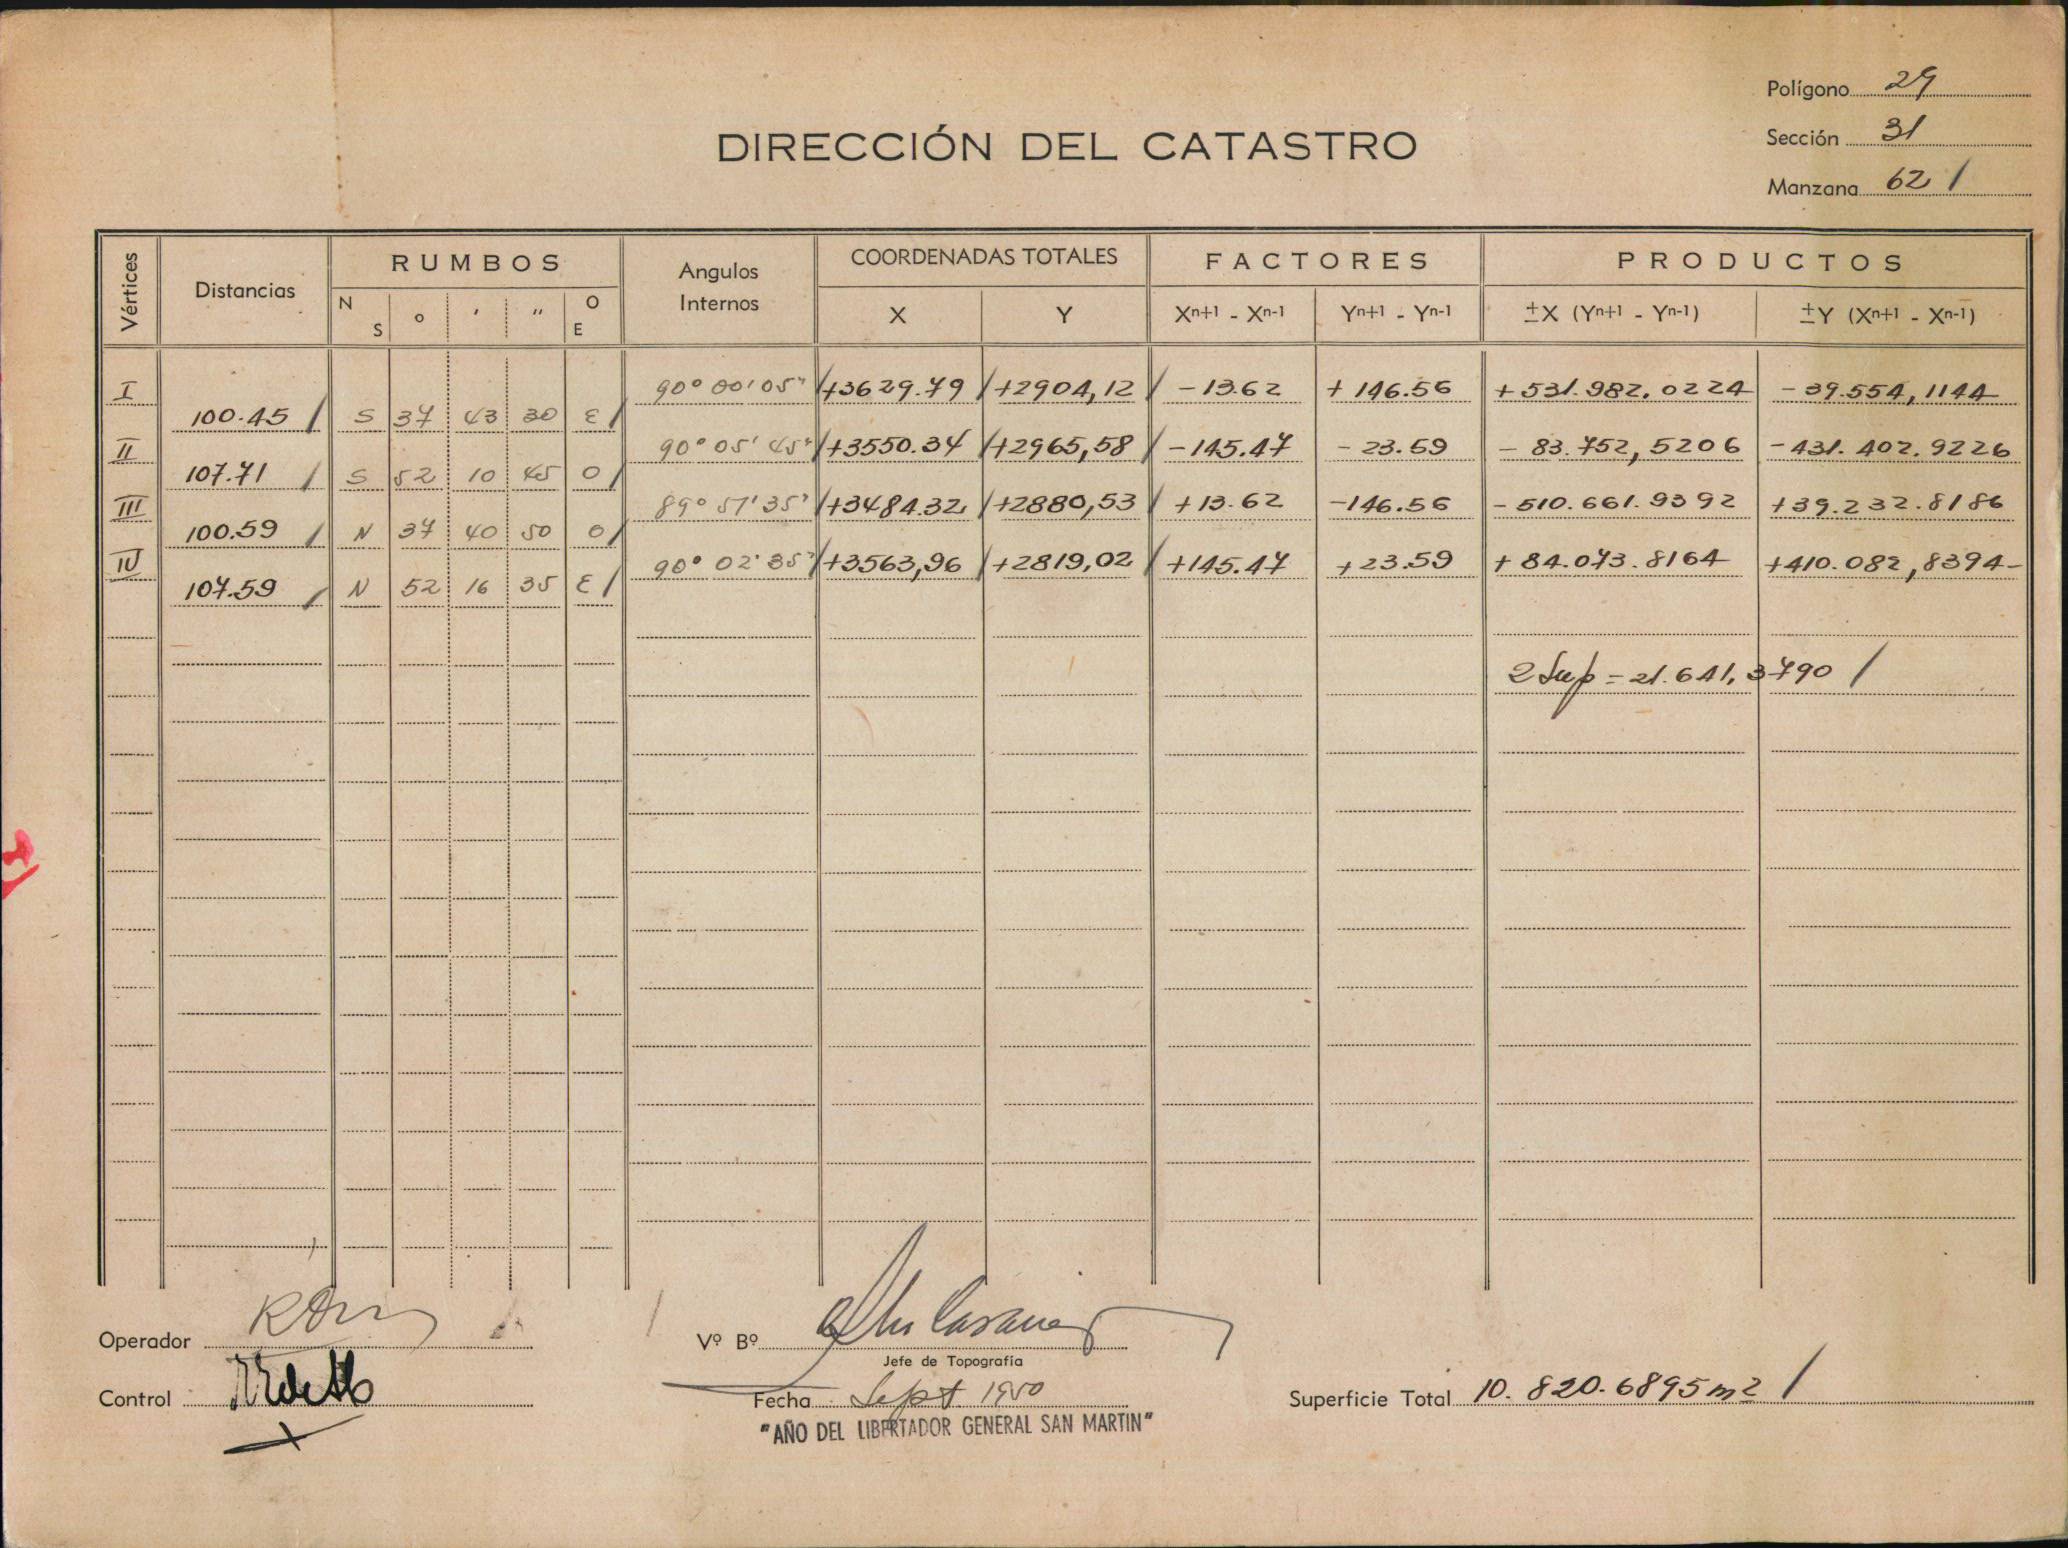 Polígono 29
DIRECCIÓN DEL CATASTRO
Sección 31
Manzana 62 /
Vértices Distancias RUMBOS Angulos Internos COORDENADAS TOTALES FACTORES PRODUCTOS
N S ° ' " O E X Y Xn+1 - Xn-1 Yn+1 - Yn-1 ±X (Yn+1 - Yn-1) ±Y (Xn+1 - Xn-1)
I 90° 00' 05" /+3629.79 /+2904,12 / -13.62 +146.56 +531.982.0224 -39.554,1144
100.45 / S 37 43 30 E /
II 90° 05' 45" /+3550.34 /+2965,58 / -145.47 -23.59 -83.752,5206 -431.402.9226
107.71 / S 52 10 45 O /
III 89° 51' 35" /+3484.32 /+2880,53 / +13.62 -146.56 -510.661.9392 +39.232.8186
100.59 / N 37 40 50 O /
IV 90° 02' 35" /+3563,96 /+2819,02 / +145.47 +23.59 +84.073.8164 +410.082,8394-
107.59 / N 52 16 35 E /
2 Sup = 21.641,3790 /
Operador
Vº Bº
Jefe de Topografía
Control
Fecha Sept 1950
Superficie Total 10.820.6895 m2 /
"AÑO DEL LIBERTADOR GENERAL SAN MARTIN"